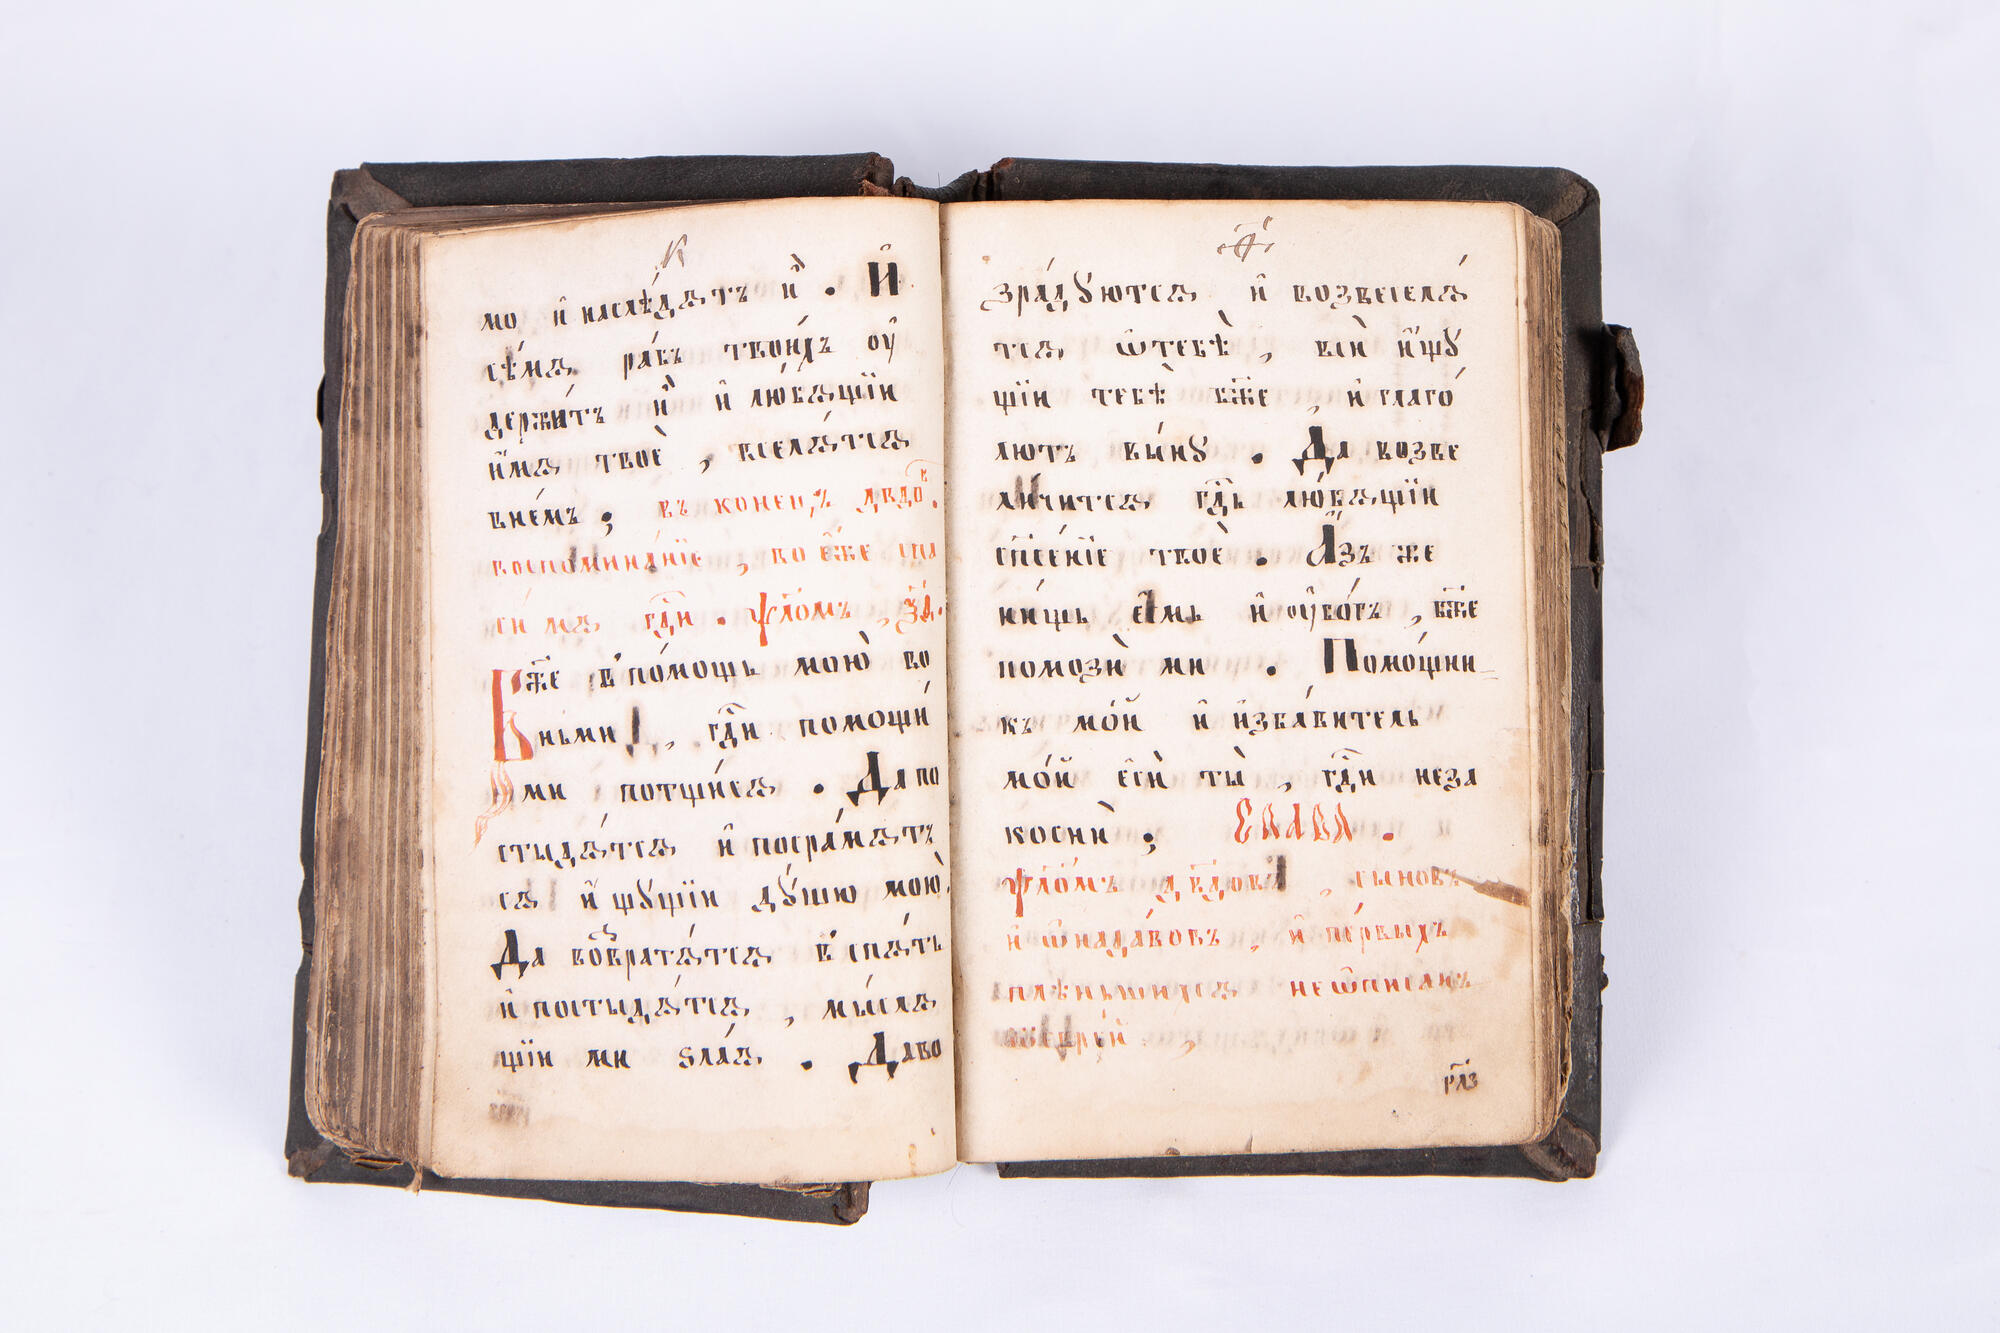 К
мо и҆ наслѣ́дѧтъ и҆̀ . И҆
сѣ́мѧ ра́бъ твои́хъ оу҆
держи́тъ и҆̀ и҆ лю́бѧщїи
и҆́мѧ твоѐ , вселѧ́тсѧ
вне́мъ ; въ коне́цъ дв҃дов .
воспомина́нїе , во є҆́же спа
сти́ мѧ гд҇и . ѱало́мъ , ѯ҃ѳ .
Бж҃е в по́мощь мою̀ во
ньмѝ , гд҇и помощи́
ми потщи́сѧ . Да по
стыдѧ́тсѧ и҆ посра́мѧтъ
сѧ и҆́щꙋщїи дꙋ́шꙋ мою̀ .
Да возвратѧ́тсѧ вспѧ́ть
и҆ постыдѧ́тсѧ , мы́слѧ
щїи ми ѕла́ѧ . Даво
зра́дꙋютсѧ и҆ возвеселѧ́
тсѧ ѡ҆тебѣ̀ , всѝ и҆́щꙋ
щїи тебѣ̀ бж҃е , и҆ глаго́
лютъ вы́нꙋ . Да возве
личитсѧ гд҇ь лю́бѧщїи
сп҃се́нїе твоѐ . А҆́зъ же
ни́щь є҆́смь и҆ оу҆бо́гъ , бж҃е
помозѝ ми . Помо́щни
къ мо́й и҆ и҆зба́витель
мо́й є҆сѝ ты̀ , гд҇и неза
коснѝ ; Слава .
ѱало́мъ дв҃довъ , сыновъ
и҆ ѡ҆надавовъ , и҆ пе́рвыхъ
плѣ́ньшихсѧ неѡ҆писанъ
ѡ҆євре́й .
рл҃з